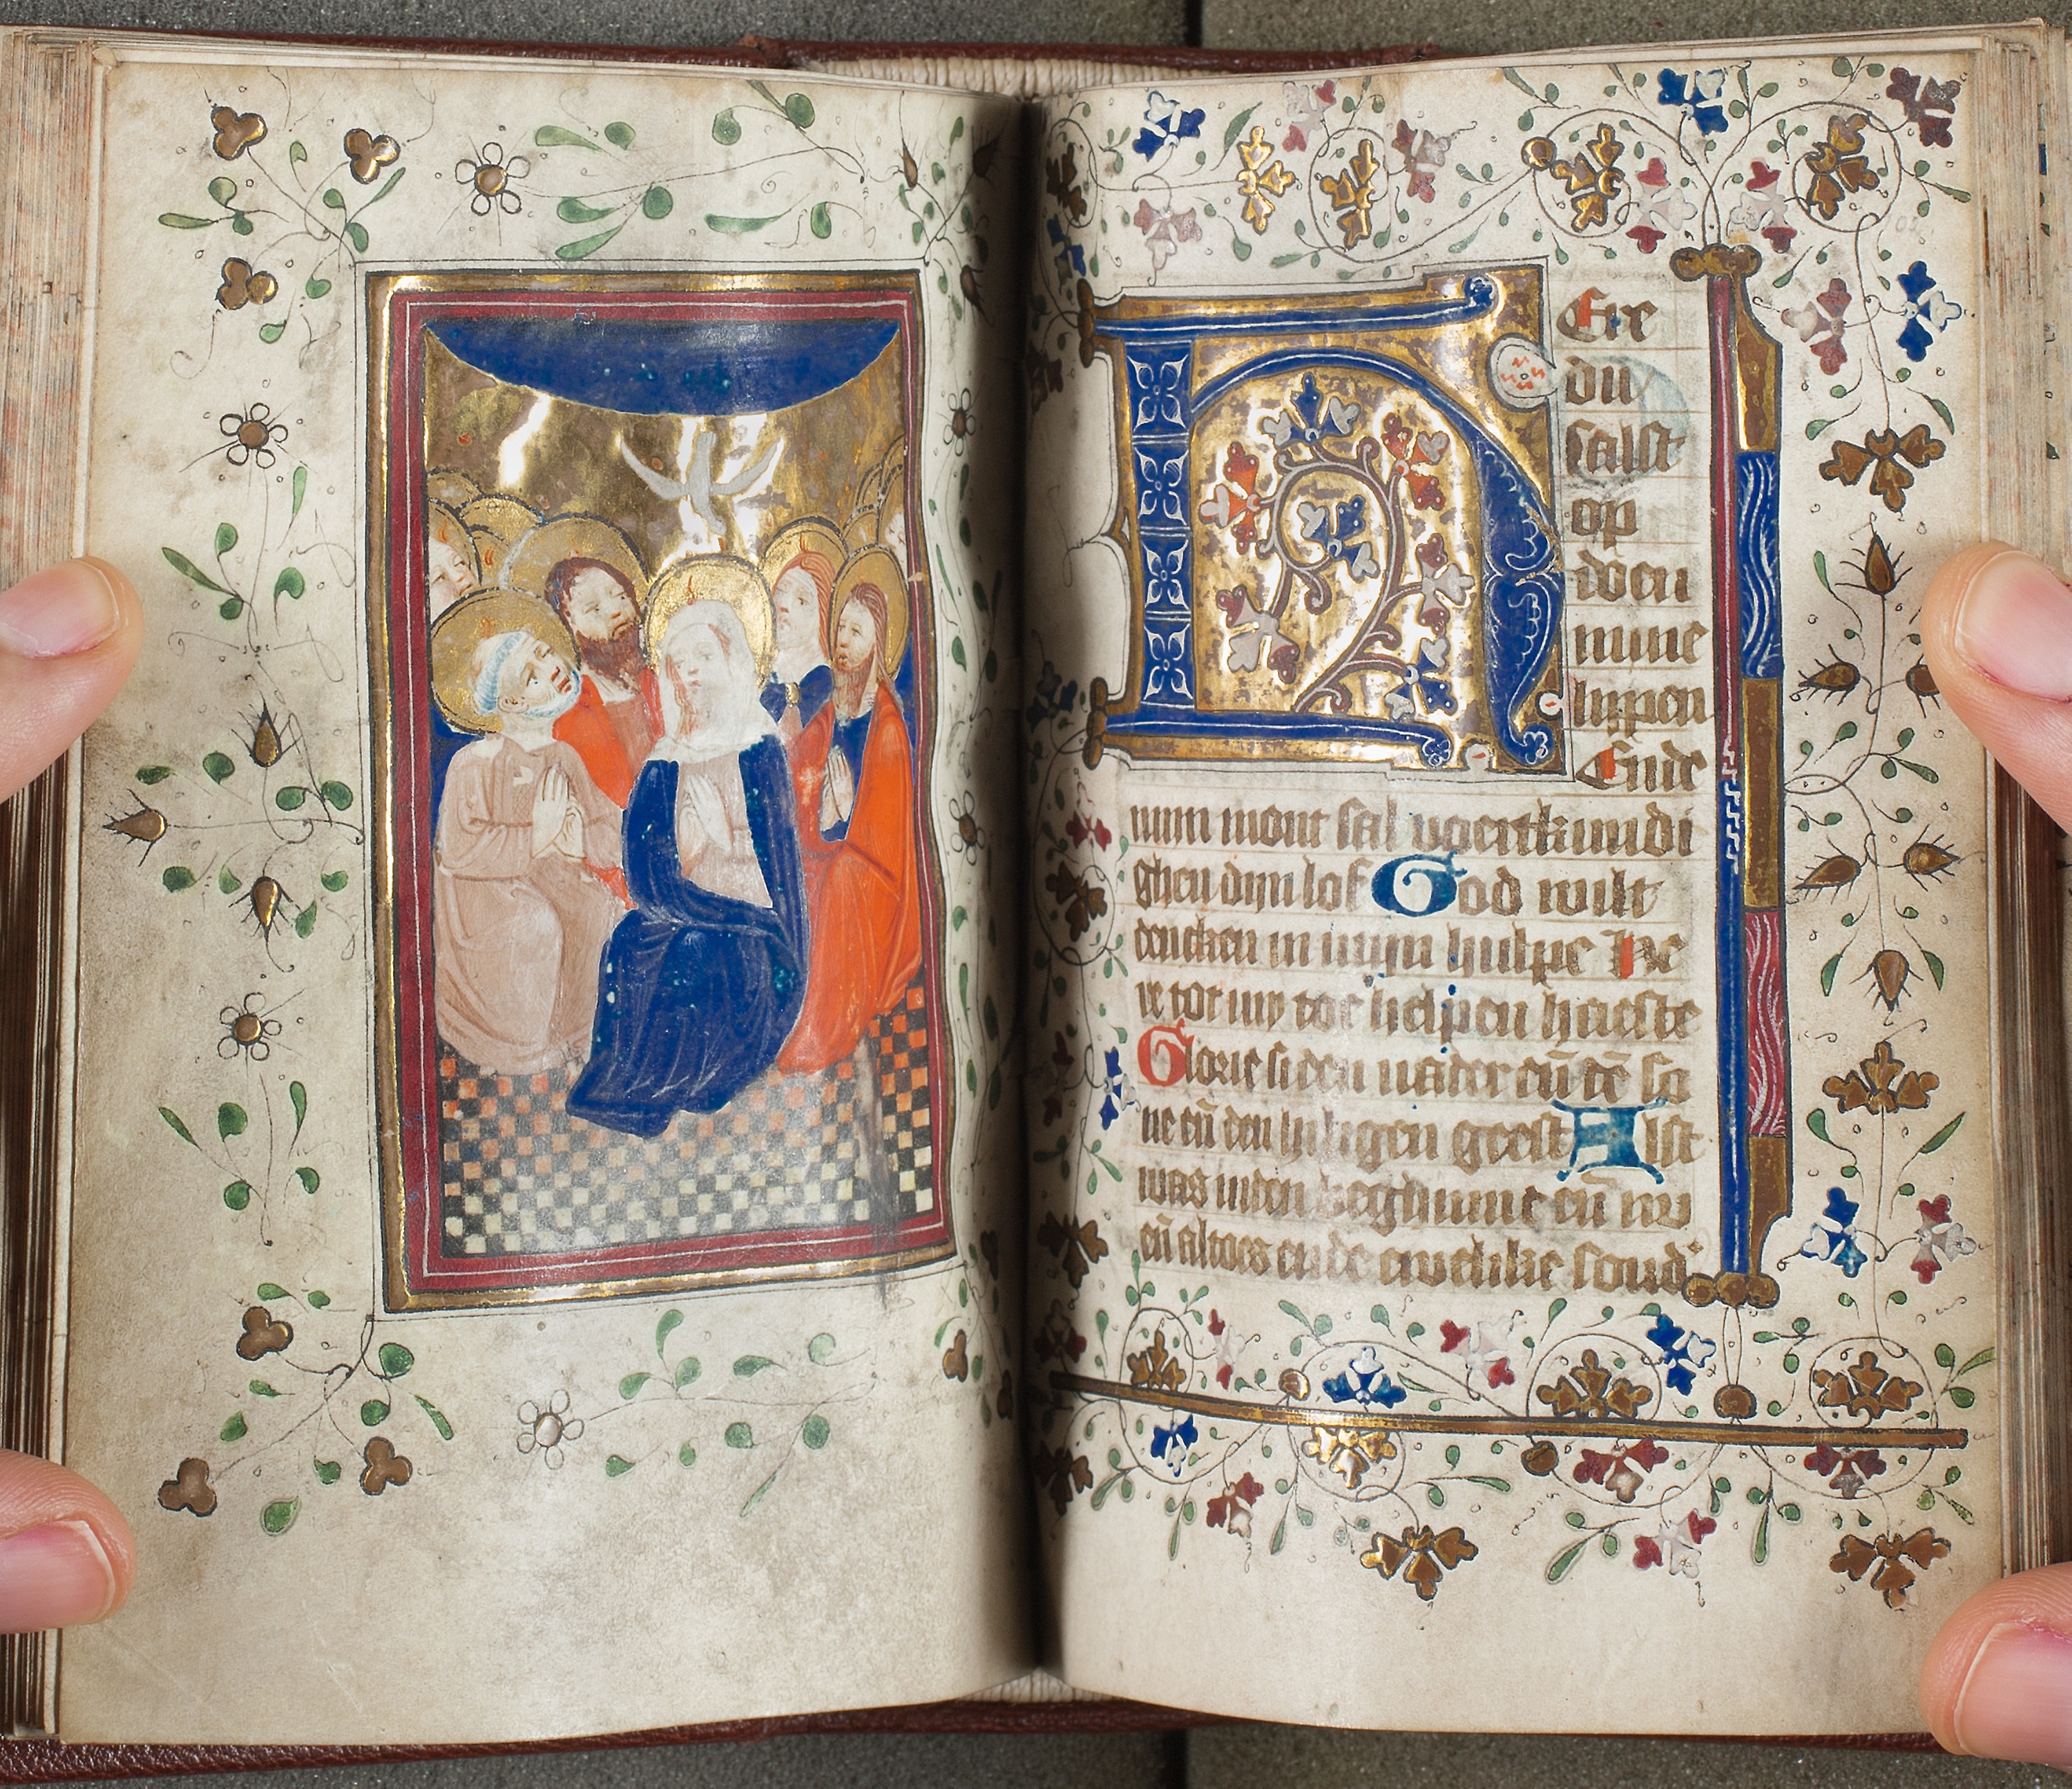 Here
du
salst
op
doen
mine
lippen
Ende
mijn mont sal voertkundi
ghen dijn lof God wilt
dencken in mijn hulpe He
re tot my toe helpen haeste
Glorie si den vader eñ dē so
ne eñ den heiligen geest Alst
was inden beghinne eñ nv
eñ altoes ende ewelike sond